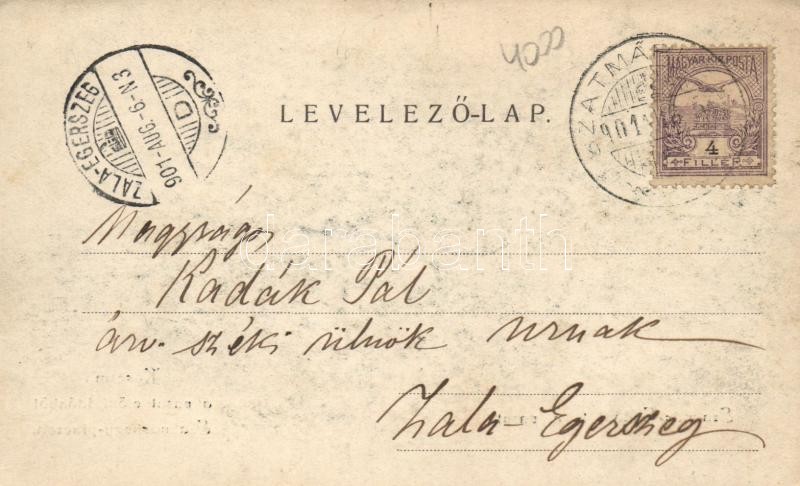 ZALA-EGERSZEG
901-AUG.-6-N3
D
LEVELEZŐ-LAP.
SZATMÁR
901
MAGYAR KIR. POSTA
4
FILLÉR
Nagyságos
Kadák Pál
árv. széki ülnök urnak
Zala-Egerszeg
darabanth